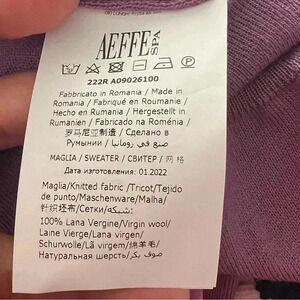 AEFFE SPA
222R A09026100
Fabbricato in Romania / Made in
Romania / Fabriqué en Roumanie /
Hecho en Rumania / Hergestellt in
Rumänien / Fabricado na Roménia /
罗马尼亚制造 / Сделано в
Румынии / صنع في رومانيا
MAGLIA / SWEATER / СВИТЕР /
Дата изготовления: 01.2022
Maglia/Knitted fabric /Tricot/Tejido
de punto/Maschenware/Malha/
针织坯布/Сетки/شبكة:
100% Lana Vergine/Virgin wool/
Laine Vierge/Lana virgen/
Schurwolle/Lã virgem/绵羊毛/
Натуральная шерсть/صوف بكر